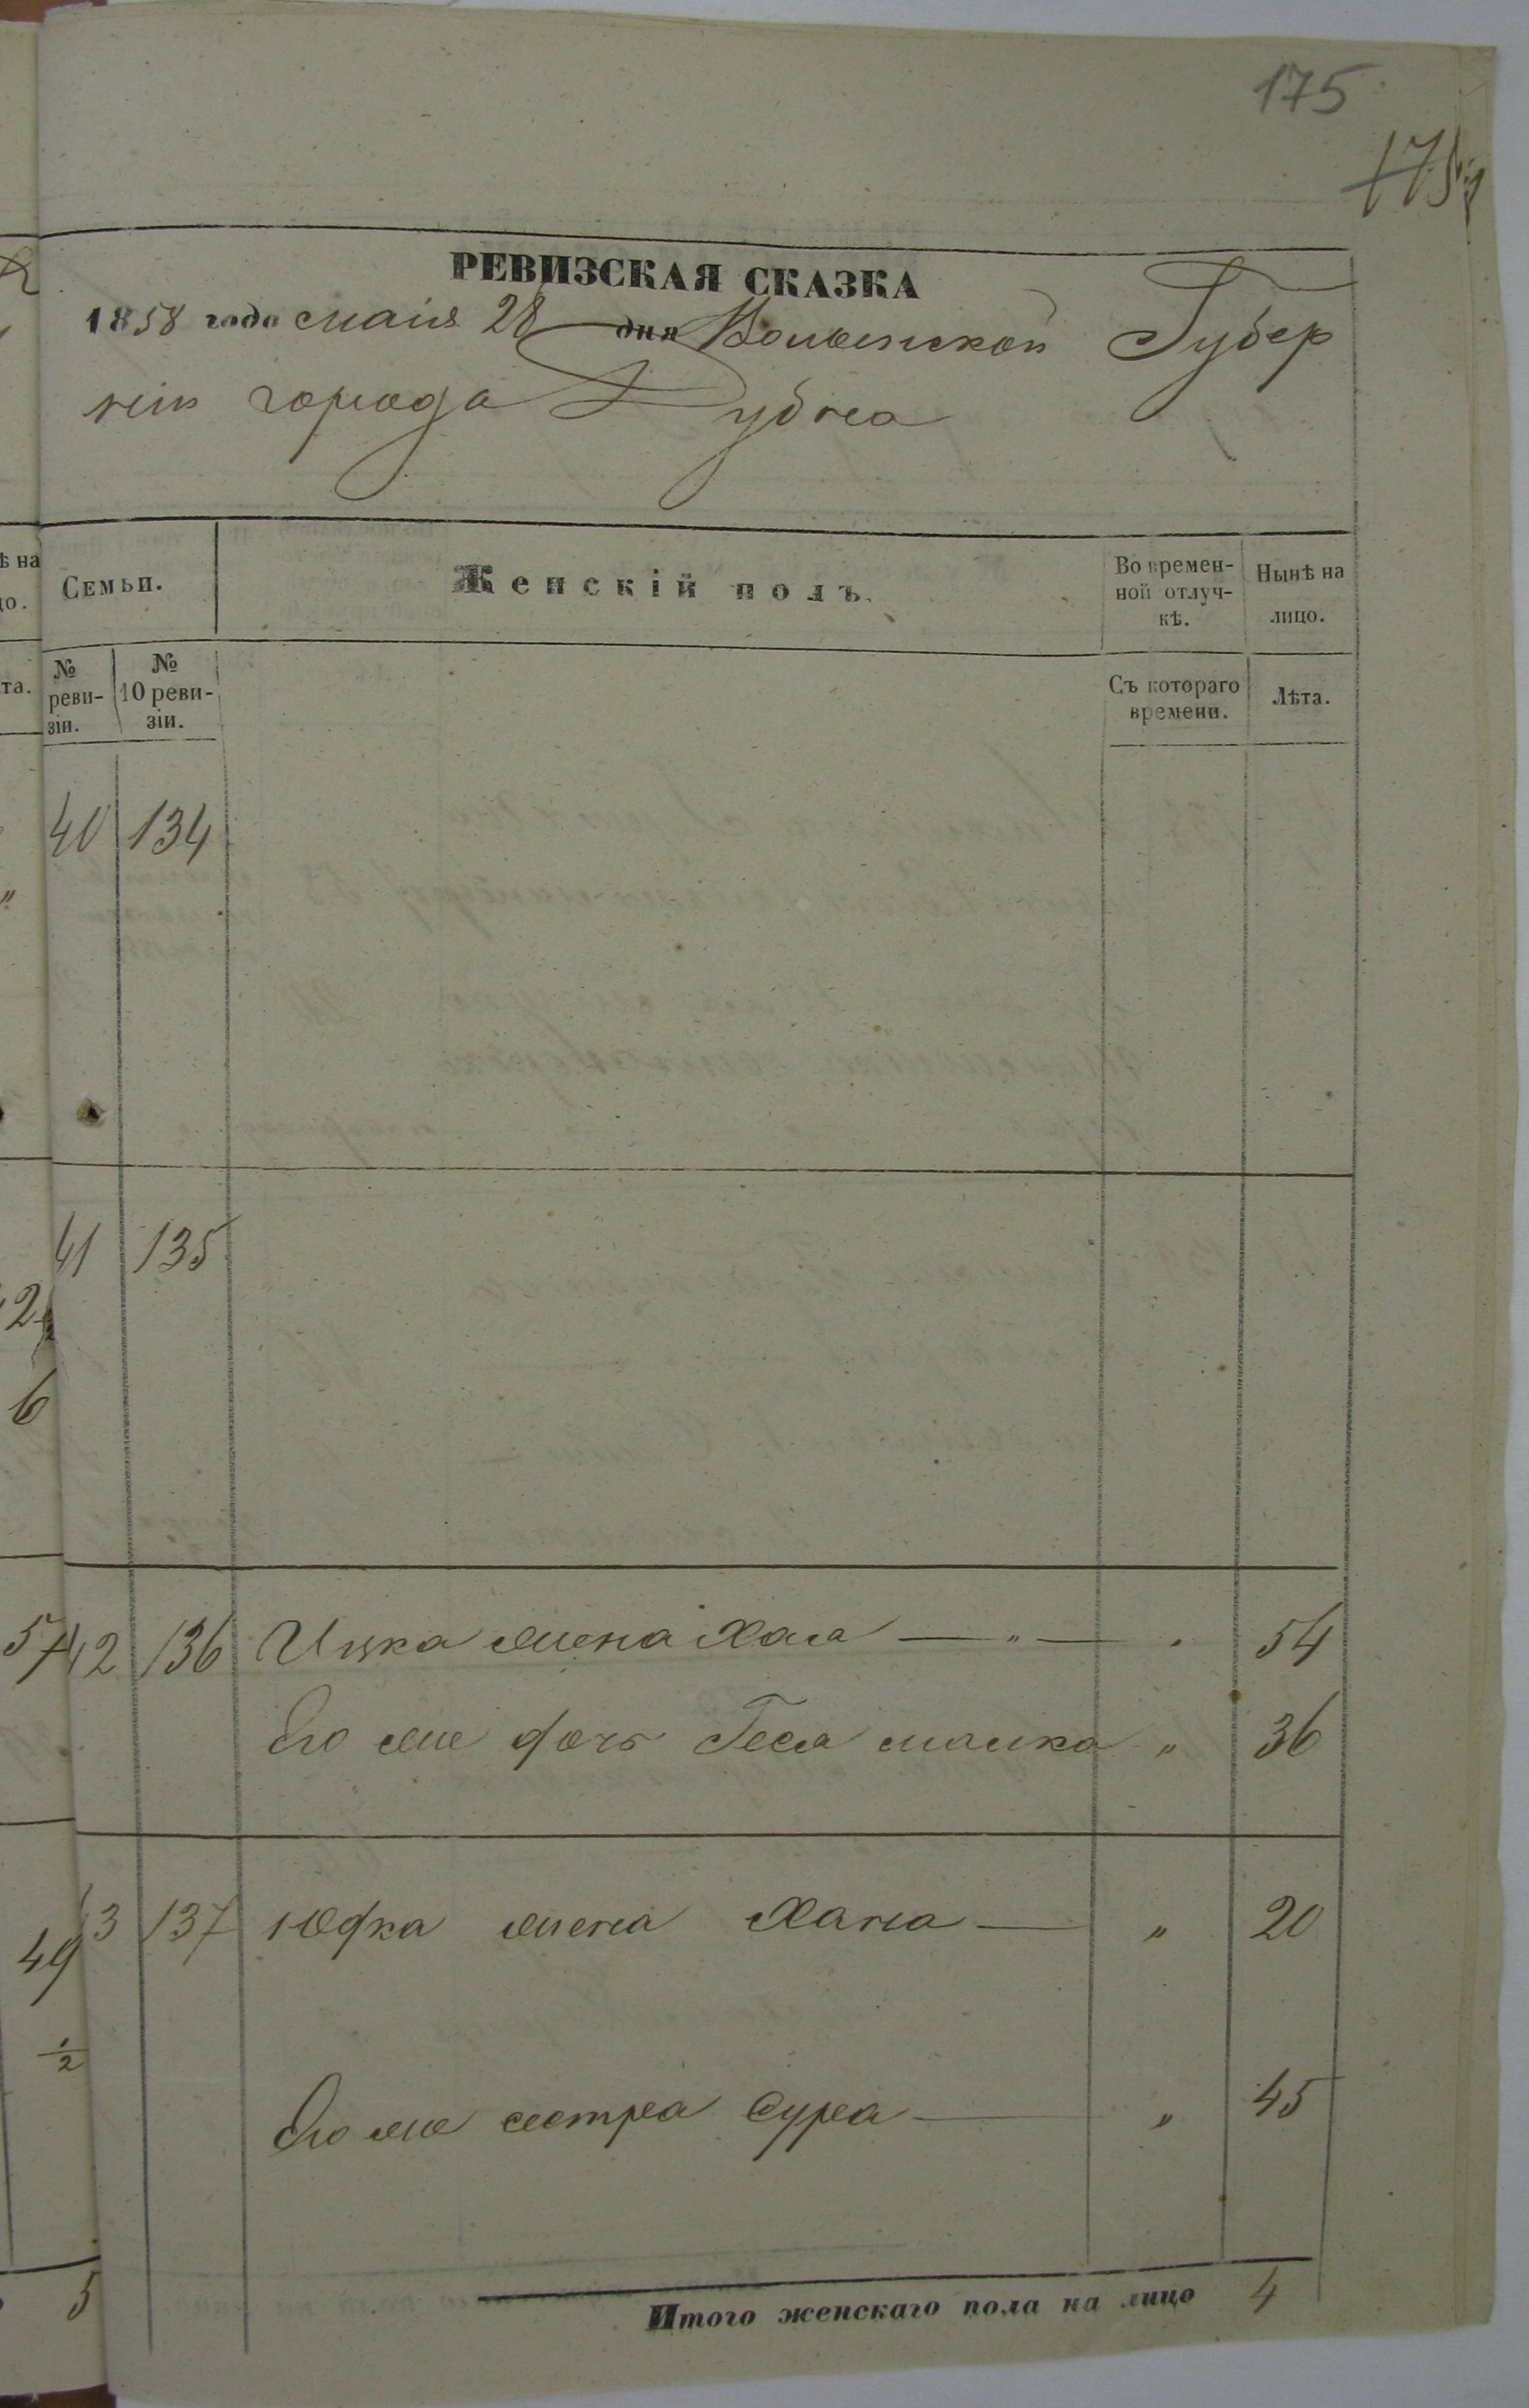 175
175
РЕВИЗСКАЯ СКАЗКА
1858 года маія 28 дня Волынской Губер
ніи города Дубна
ѣ на
Семьи.
Женскій полъ.
Во времен-
ной отлуч-
кѣ.
Нынѣ на
лицо.
№
реви-
зіи.
№
10 реви-
зіи.
Съ котораго
времени.
Лѣта.
та.
40 134
41 135
2
6
57
42 136 Ицка жена Хая — " — " 54
Его же дочь Геся малка " 36
3 137 Юдка жена Хана — " 20
49
1/2
Его же сестра Сура — " 45
5
Итого женскаго пола на лицо 4